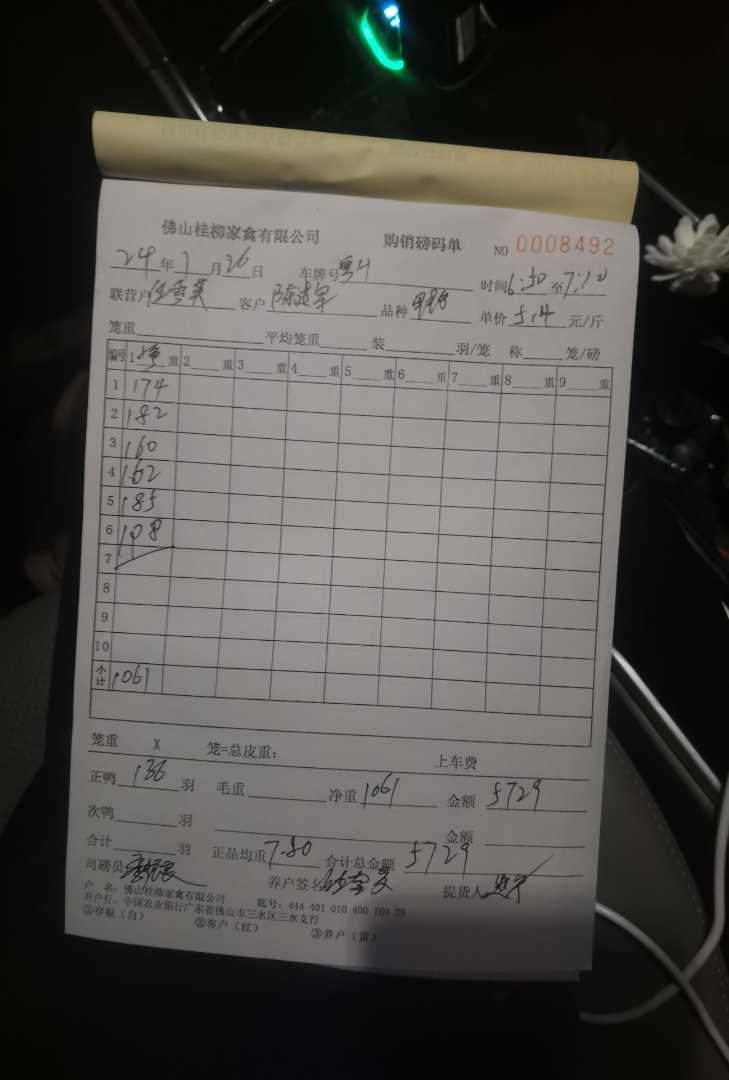 佛山桂柳家禽有限公司 购销磅码单 NO 0008492
24年7月26日 车牌号 时间6:50至7:10
联营户 客户 品种 单价5.4元/斤
笼重 平均笼重 装 羽/笼 称 笼/磅
编号 1净重 2 重 3 重 4 重 5 重 6 重 7 重 8 重 9 重
1 174
2 182
3 160
4 162
5 185
6 198
7
8
9
10
小计 1061
笼重 X 笼=总皮重: 上车费
正鸭136羽 毛重 净重1061 金额5729
次鸭 羽 金额
合计 羽 正品均重7.80 合计总金额5729
司磅员 养户签名 提货人
户 名: 佛山桂柳家禽有限公司 账号: 444 401 010 400 169 28
开户行: 中国农业银行广东省佛山市三水区三水支行
①存根（白） ②客户（红） ③养户（黄）